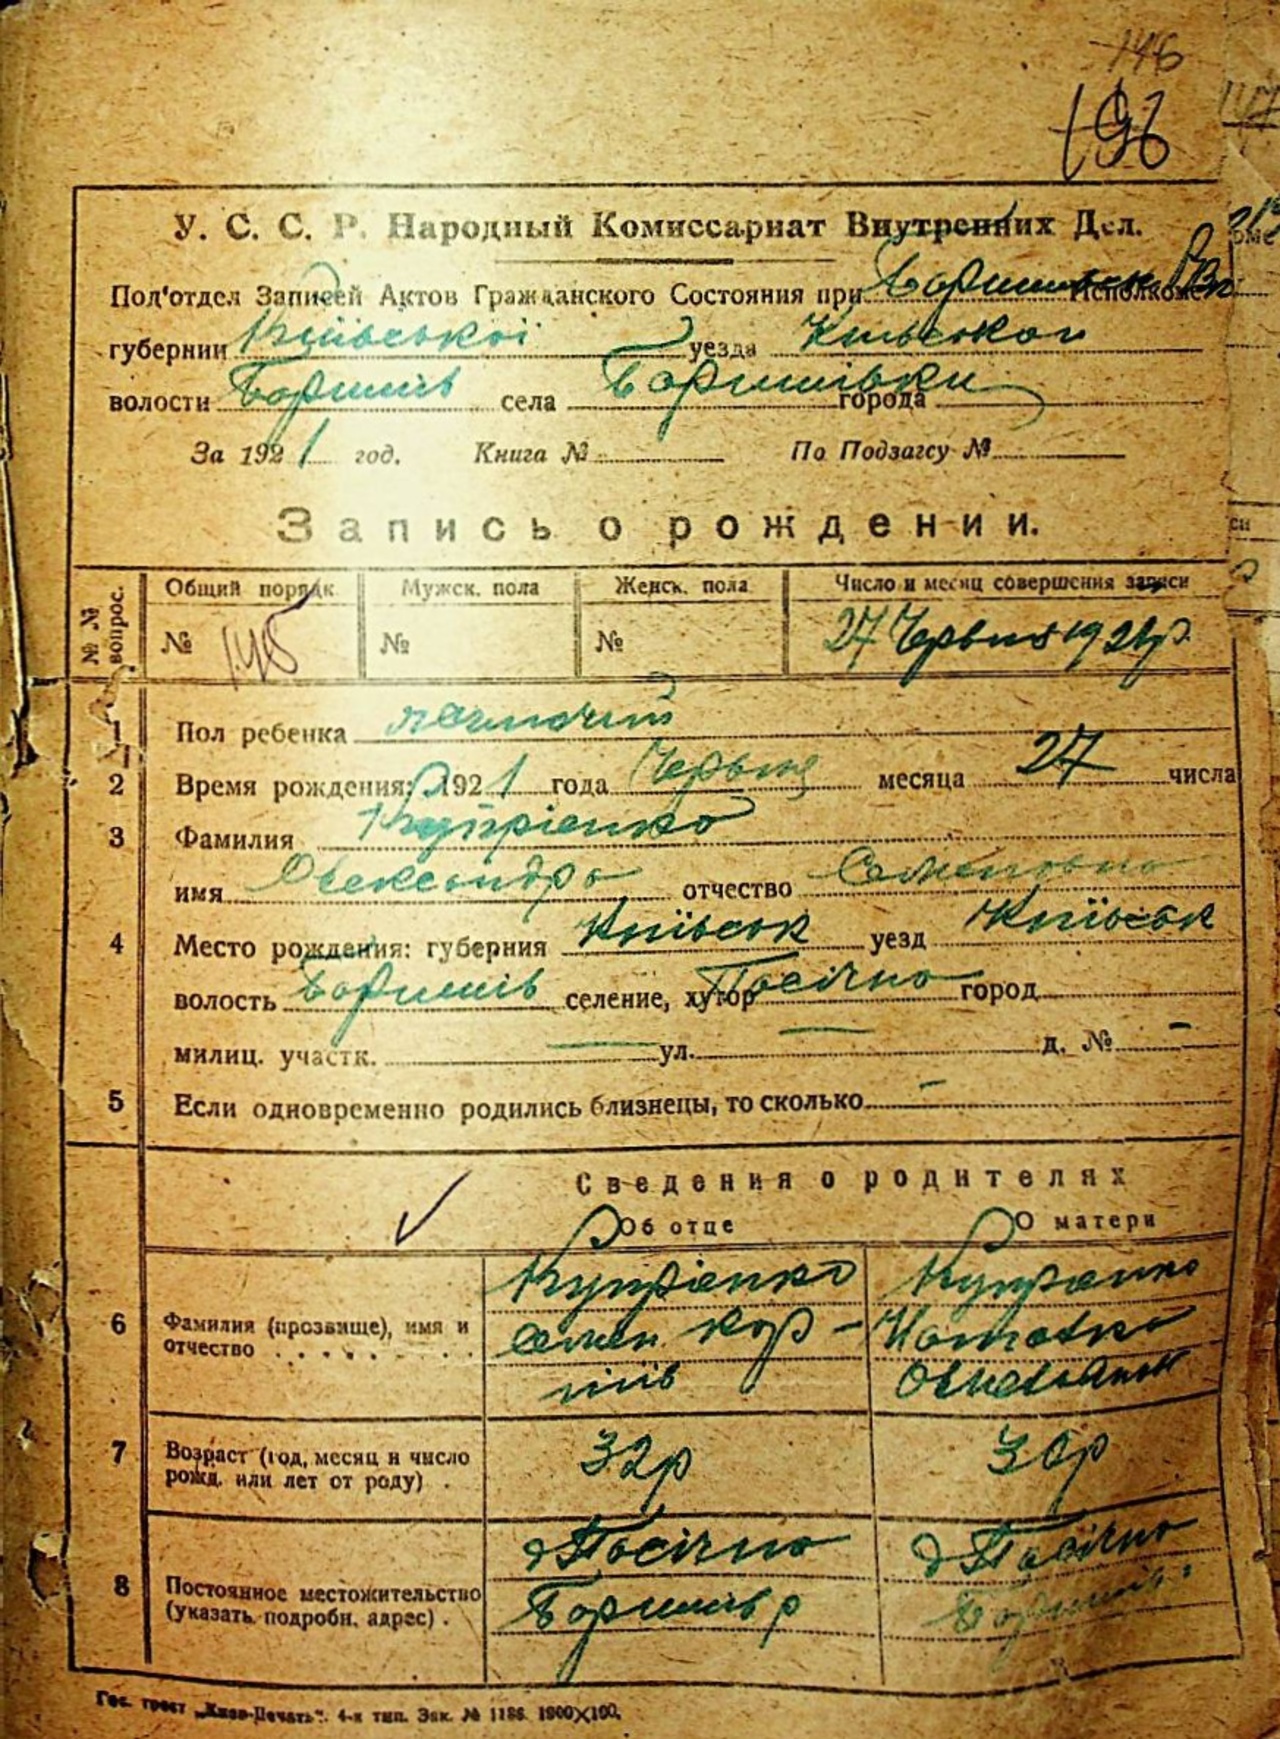 146
196
У. С. С. Р. Народный Комиссариат Внутренних Дел.
Под'отдел Записей Актов Гражданского Состояния при Исполкоме
губернии Київської уезда Київског
волости Баришів села Баришівки города
За 1921 год. Книга № По Подзагсу №
Запись о рождении.
№ № вопрос. Общий порядк. Мужск. пола Женск. пола Число и месяц совершения записи
№ 145 № № 27 Червня 1921 р.
1 Пол ребенка жиночий
2 Время рождения: 1921 года Червня месяца 27 числа
3 Фамилия Купріенко
имя Олександра отчество Семеновна
4 Место рождения: губерния Київськ уезд Київськ
волость Баришів селение, хутор Пасічно город
милиц. участк. — ул. — д. № —
5 Если одновременно родились близнецы, то сколько —
Сведения о родителях
Об отце О матери
6 Фамилия (прозвище), имя и отчество
Купріенко Купріенко
Семен Кор-
ніїв
7 Возраст (год, месяц и число рожд. или лет от роду) . 32р 30р
8 Постоянное местожительство (указать подробн. адрес) .
д Пасічно д Пасічно
Баришів р Баришів.
Гос. трест „Киев-Печать". 4-я тип. Зак. № 1186. 1900×100.